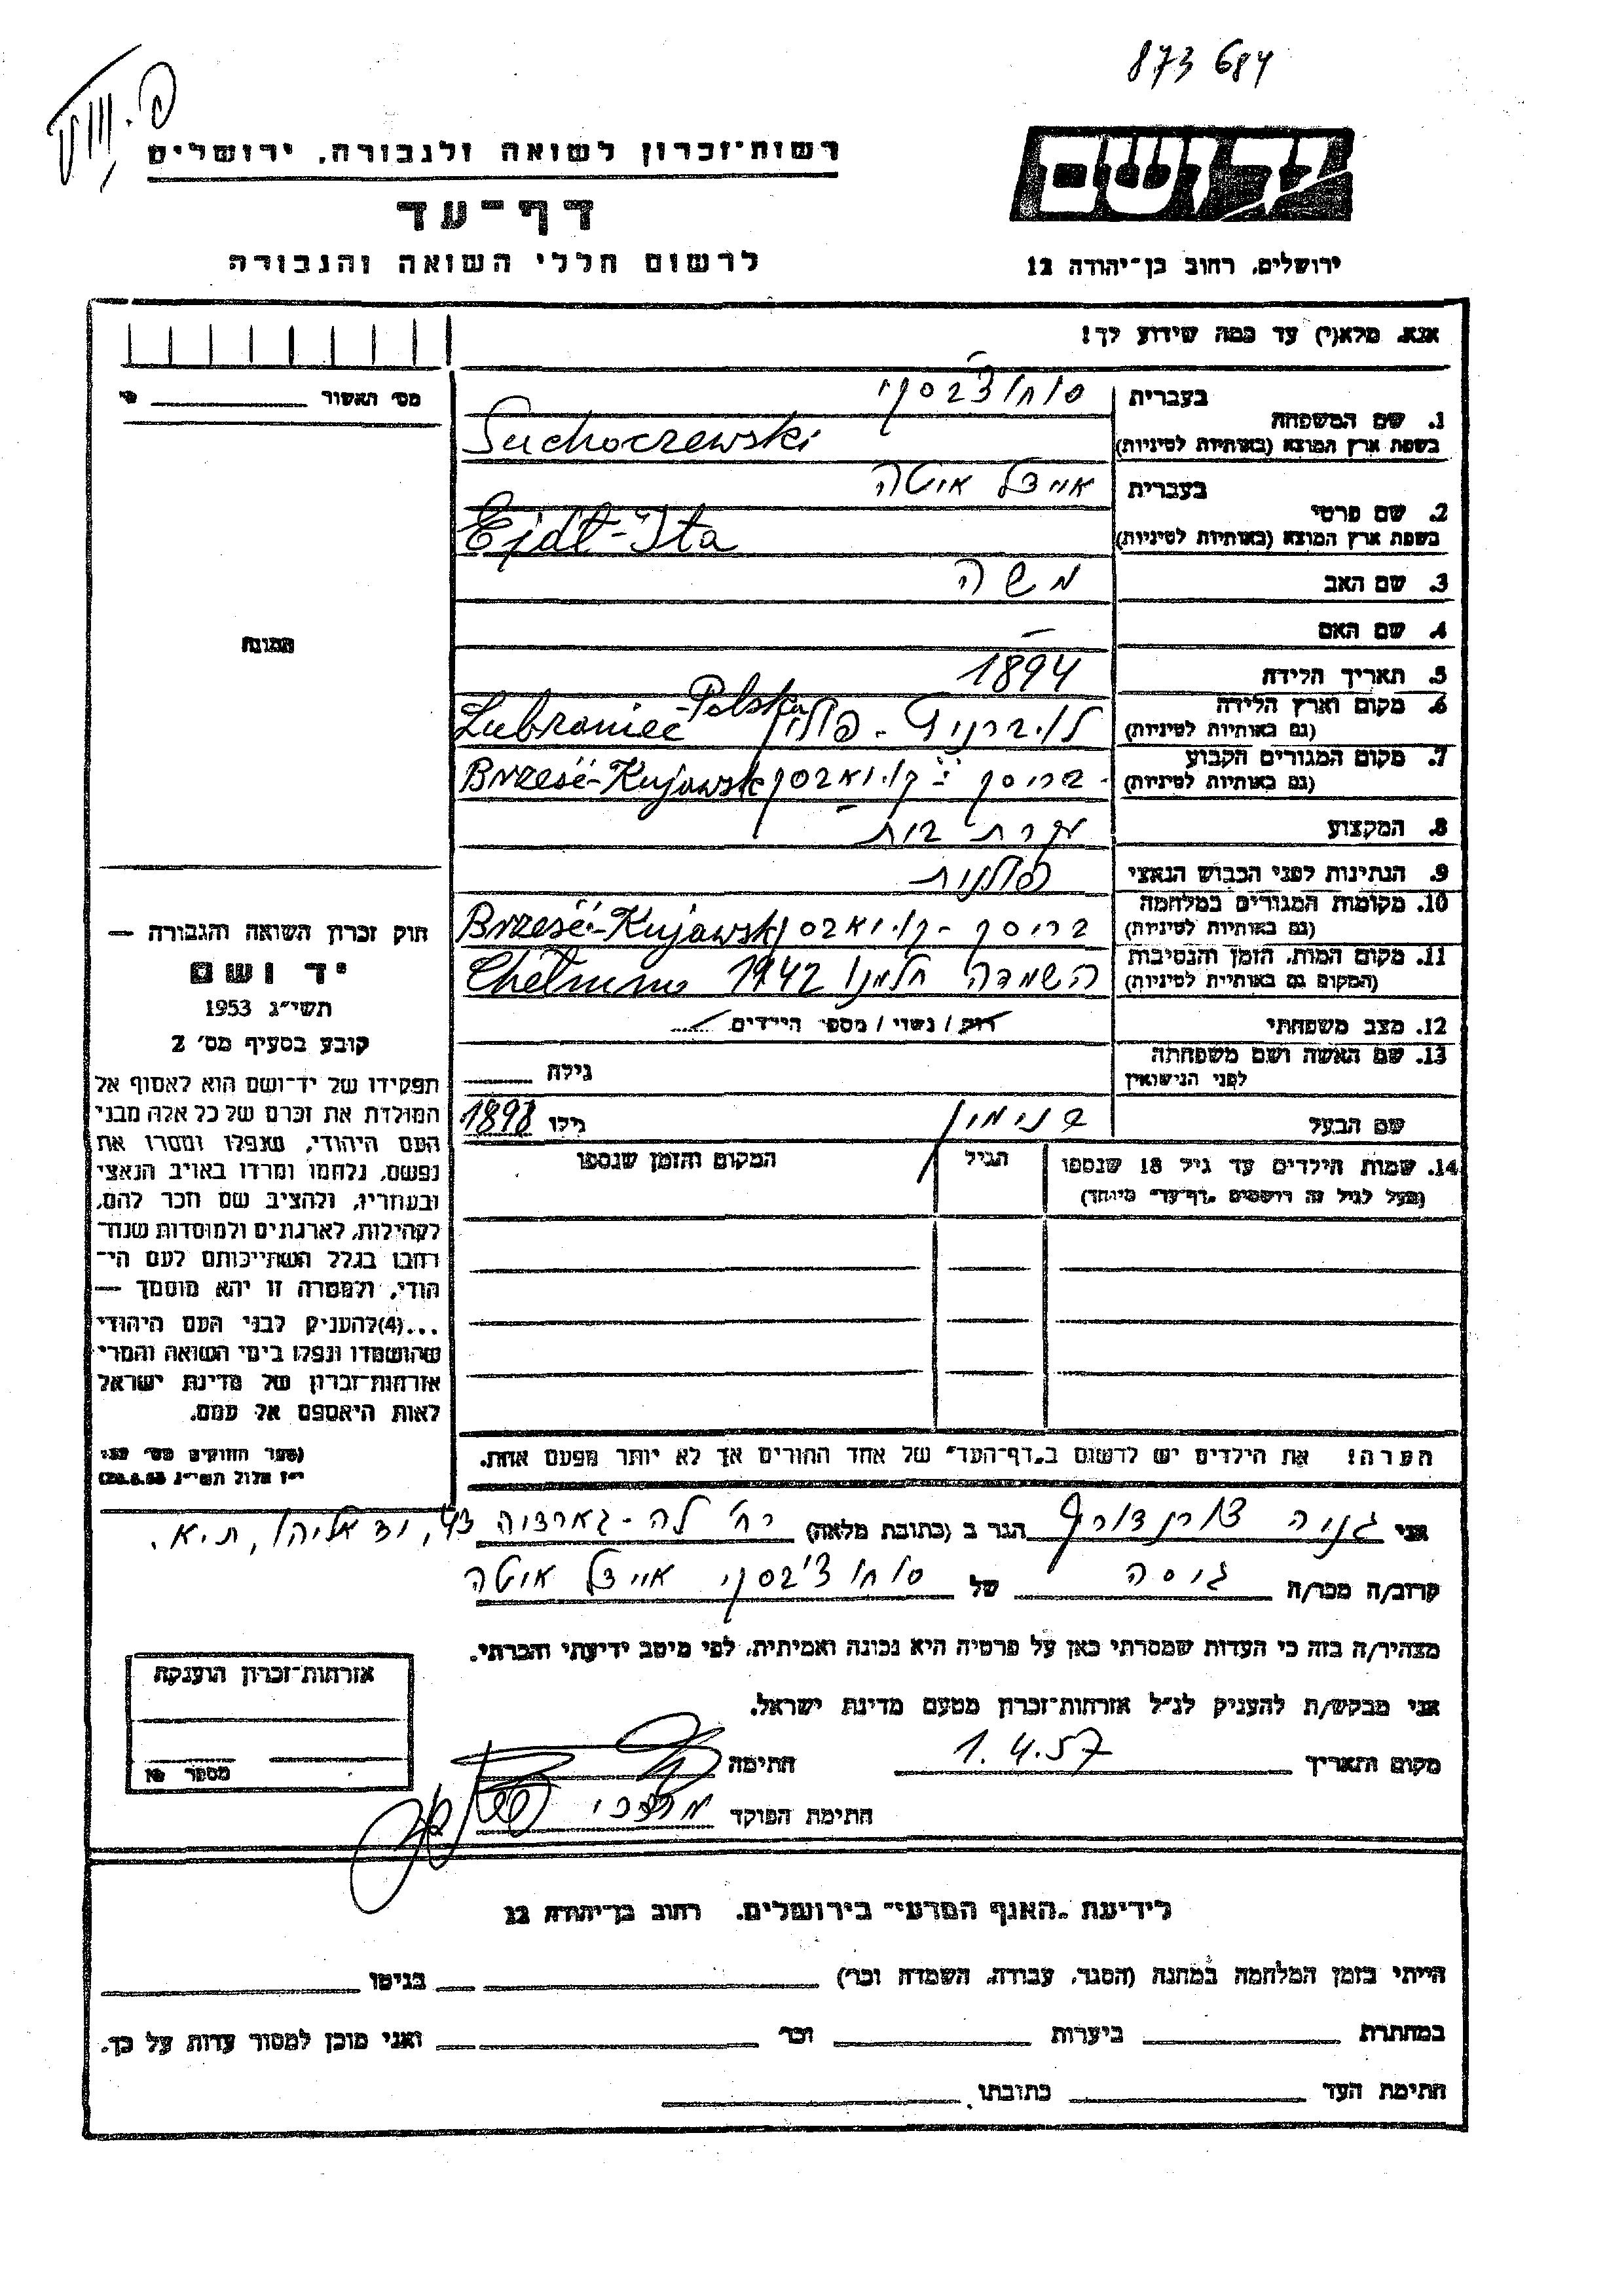 873 684
רשות־זכרון לשואה ולגבורה, ירושלים
דף־עד
לרשום חללי השואה והגבורה
יד ושם
ירושלים, רחוב בן־יהודה 12
אנא, מלא(י) עד כמה שידוע לך!
מס׳ האשור
בעברית סוחוצ׳בסקי
1. שם המשפחה
בשפת ארץ המוצא (באותיות לטיניות) Suchoczewski
בעברית איידל איטה
2. שם פרטי
בשפת ארץ המוצא (באותיות לטיניות) Ejdl-Ita
3. שם האב משה
4. שם האם —
5. תאריך הלידה 1894
6. מקום וארץ הלידה לוברניץ - פולין Lubraniec - Polska
(גם באותיות לטיניות)
7. מקום המגורים הקבוע בריסק קויאבסק Brześć-Kujawski
(גם באותיות לטיניות)
8. המקצוע עקרת בית
9. הנתינות לפני הכבוש הנאצי פולנית
10. מקומות המגורים במלחמה בריסק - קויאבסק Brześć-Kujawski
(גם באותיות לטיניות)
11. מקום המות, הזמן והנסיבות השמדה חלמנו 1942 Chełmno
(המקום גם באותיות לטיניות)
12. מצב משפחתי רוק / נשוי / מספר הילדים
13. שם האשה ושם משפחתה גילה
לפני הנישואין
שם הבעל בנימין גילו 1898
14. שמות הילדים עד גיל 18 שנספו הגיל המקום והזמן שנספו
(מעל לגיל זה רושמים „דף־עד״ מיוחד)
הערה! את הילדים יש לרשום ב„דף־העד״ של אחד ההורים אך לא יותר מפעם אחת.
תמונה
חוק זכרון השואה והגבורה —
יד ושם
תשי״ג 1953
קובע בסעיף מס׳ 2
תפקידו של יד־ושם הוא לאסוף אל
המולדת את זכרם של כל אלה מבני
העם היהודי, שנפלו ומסרו את
נפשם, נלחמו ומרדו באויב הנאצי
ובעוזריו, ולהציב שם וזכר להם,
לקהילות, לארגונים ולמוסדות שנח־
רבו בגלל השתייכותם לעם הי־
הודי, ולמטרה זו יהא מוסמך —
...(4) להעניק לבני העם היהודי
שהושמדו ונפלו בימי השואה והמרי
אזרחות־זכרון של מדינת ישראל
לאות היאספם אל עמם.
(ספר החוקים מס׳ 132
י״ז אלול תשי״ג 28.8.53)
אני גניה צורנדורף הגר ב (כתובת מלאה) רח׳ לה-גארדיה 43, יד אליהו, ת.א.
קרוב/ה מכר/ה גיסה של סוחוצ׳בסקי איידל איטה
מצהיר/ה בזה כי העדות שמסרתי כאן על פרטיה היא נכונה ואמיתית, לפי מיטב ידיעתי והכרתי.
אני מבקש/ת להעניק לנ״ל אזרחות־זכרון מטעם מדינת ישראל.
מקום ותאריך 1.4.57 חתימה
חתימת הפוקד מרדכי
אזרחות־זכרון הוענקה
מספר
לידיעת „האגף המדעי״ בירושלים, רחוב בן־יהודה 12
הייתי בזמן המלחמה במחנה (הסגר, עבודה, השמדה וכו׳) בגיטו
במחתרת ביערות וכו׳ ואני מוכן למסור עדות על כך.
חתימת העד כתובתו